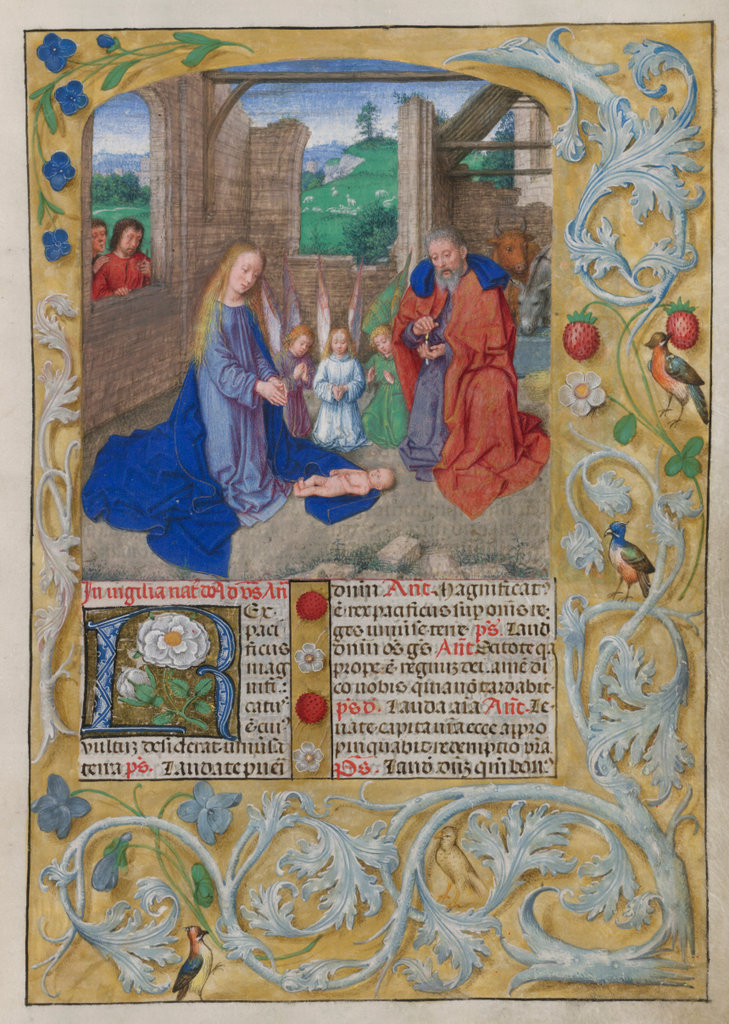 In vigilia nat̄ ad vs̄ An̄
R
Ex
paci
ficus
mag
nifi:
catus
ē cui⁹
vultuz desiderat univ̄sa
terra ps. Laudate puer̄i
dnm̄ Ant̄. Magnificat⁹
ē rex pacificus sup om̄is re
ges univ̄se terre ps. Laud̄
dnm̄ om̄s gs̄ Ant̄ Scitote q̄
prope ē regnuz dei. amē di
co vobis quia nō tardabit
ps d. Lauda aīa Ant̄. Le
vate capita vr̄a ecce appro
pinquabit redemptio vr̄a
Ps. Laud̄ dn̄z qm̄ bon⁹